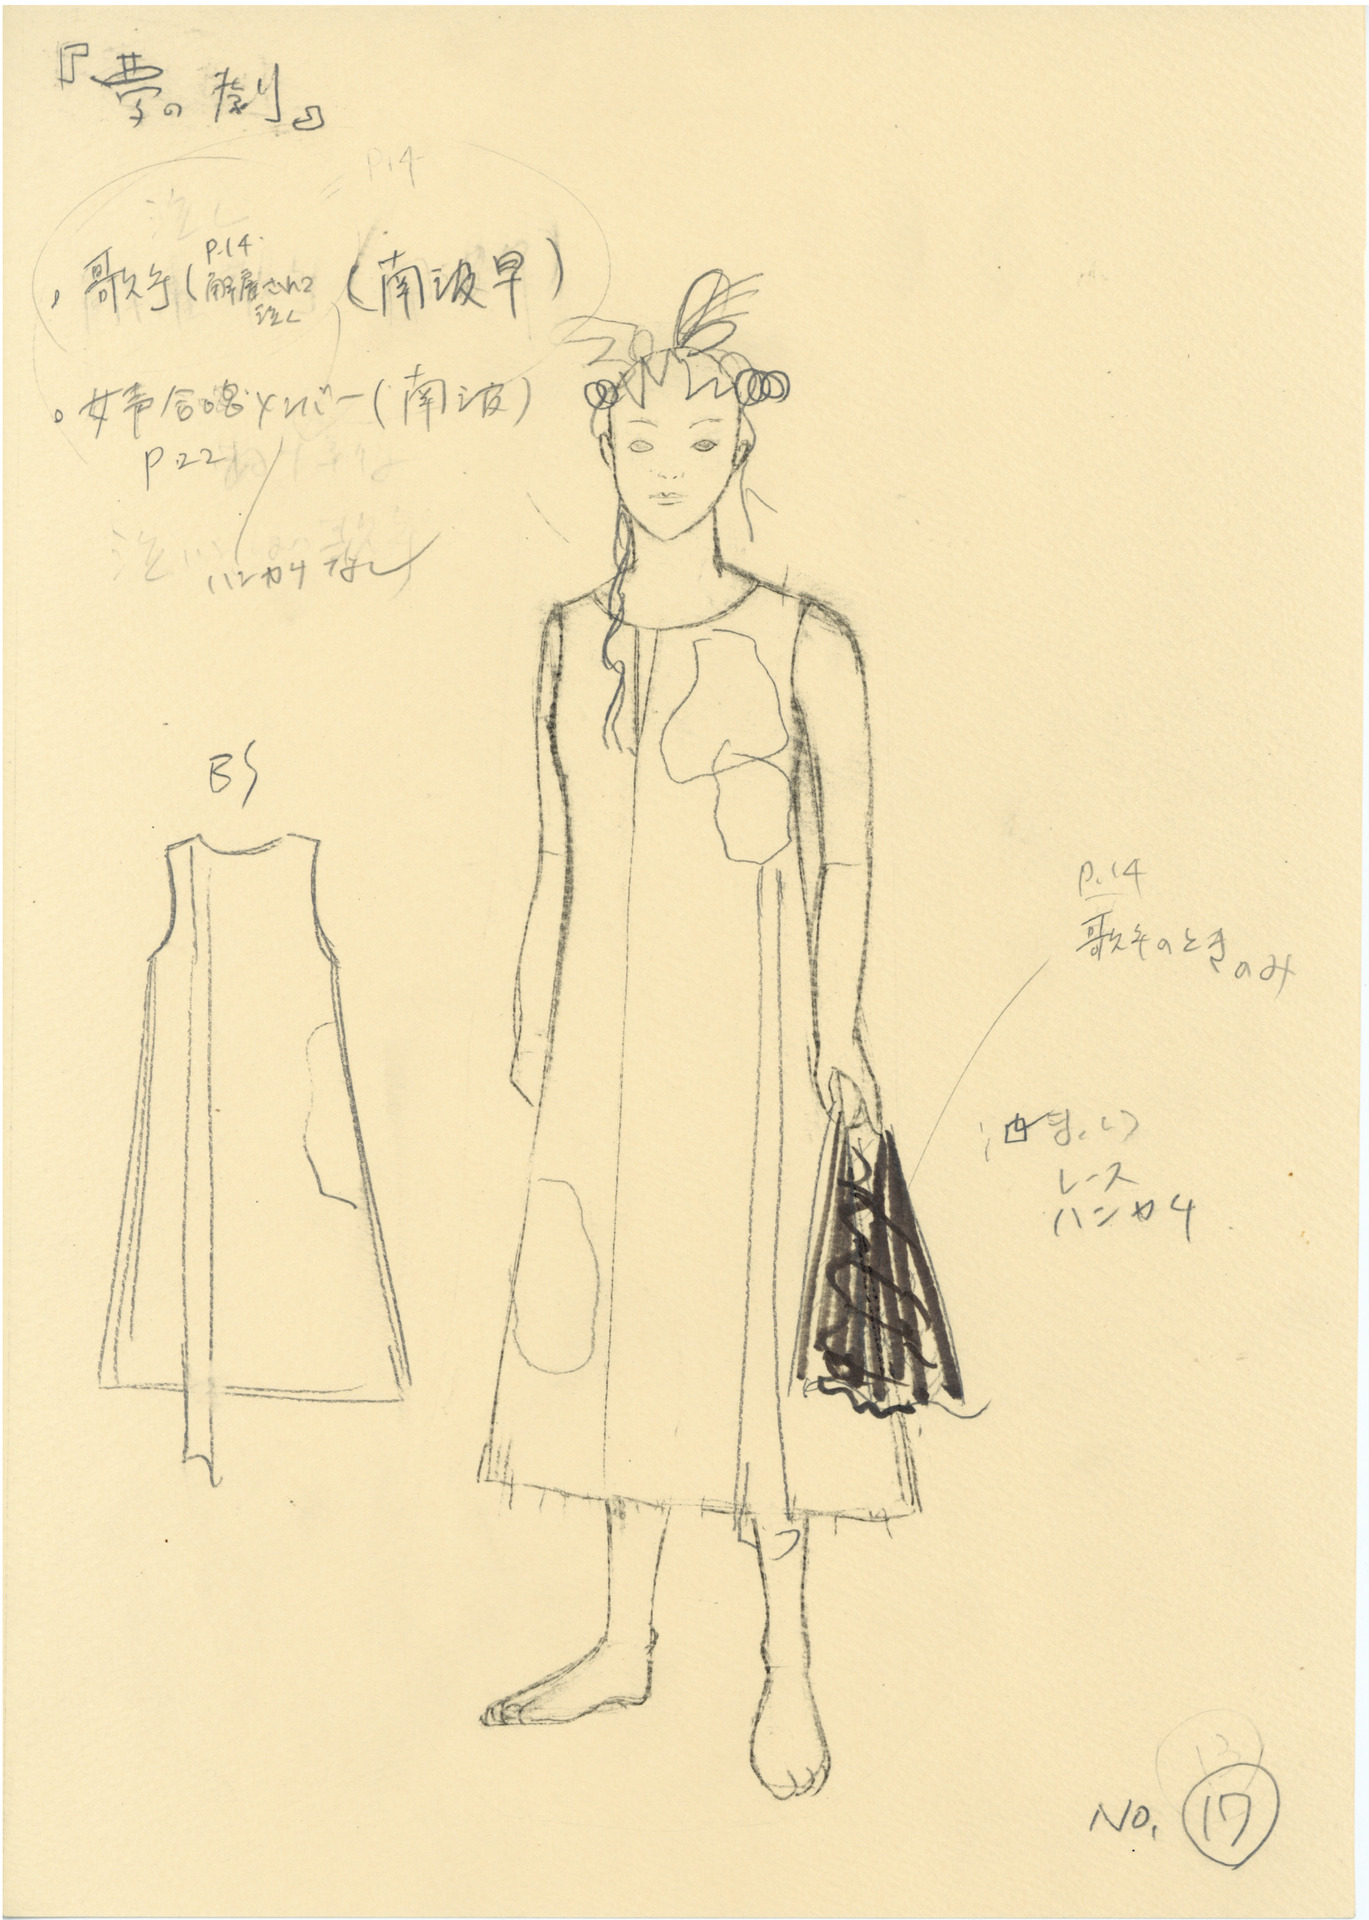 『夢の劇』
P.14
泣く
・歌手(P.14 解雇されて泣く (南波早)
。女声合唱メンバー(南波)
P.22
ハンカチなし
BS
P.14
歌手のとき
のみ
レース
ハンカチ
13
NO. 17